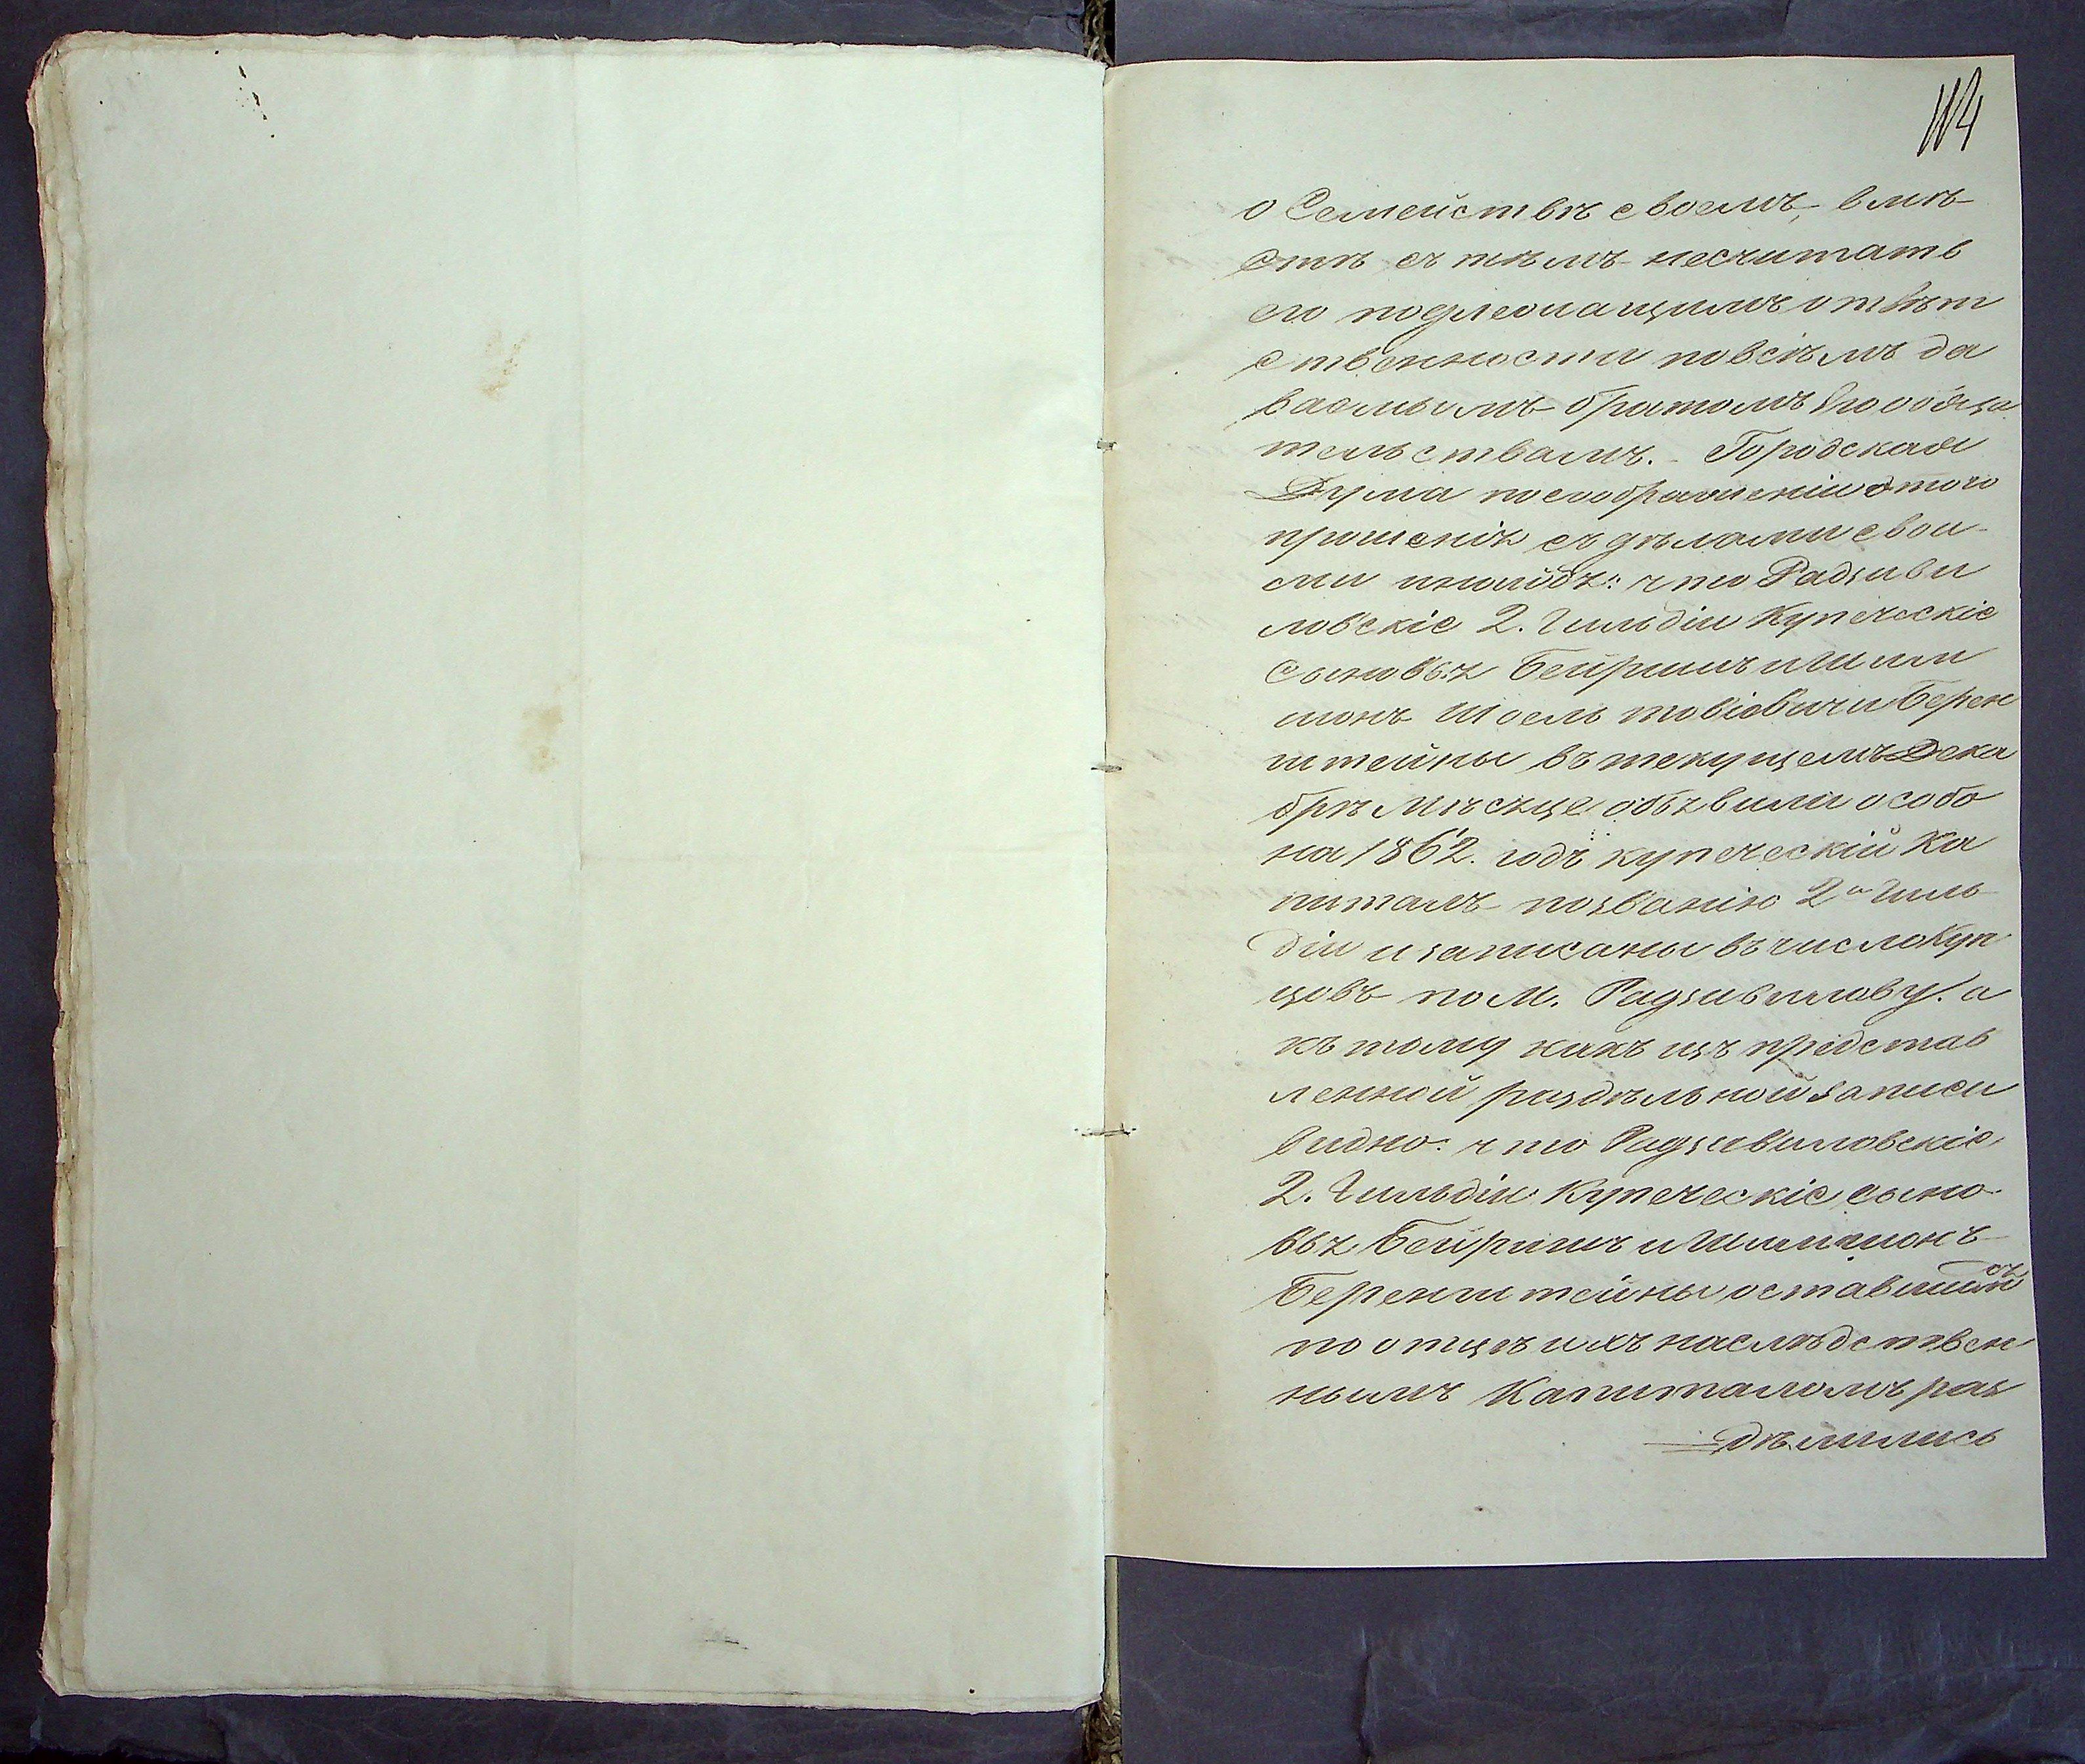 114
о Семействѣ своемъ, вмѣ-
стѣ съ тѣмъ несчитать
его подлежащимъ отвѣт
ственности повсѣмъ да
ваемымъ братомъ Его обяза
тельствамъ. - Городская
Дума посоображеніи этого
прошенія съ дѣлами свои-
ми нашла: что Радзиви
ловскіе 2. Гильдіи Купеческіе
сыновья Бейришъ и Шлі
монъ Шоель товіовичи Берен
штейны въ текущемъ Дека
брѣ Мѣсяце объявили особо
на 1862. годъ купеческій Ка
питалъ позванію 2й Гиль-
діи и записаны въ число Куп
цовъ по М. Радзивилову. а
къ тому какъ изъ представ
ленной раздѣльной записи
видно: что Радзивиловскіе
2. Гильдіи Купеческіе сыно-
вья Бейришъ и Шлимонъ
Беренштейны оставшимся
по отцѣ ихъ наслѣдствен
нымъ Капиталомъ раз
дѣлились